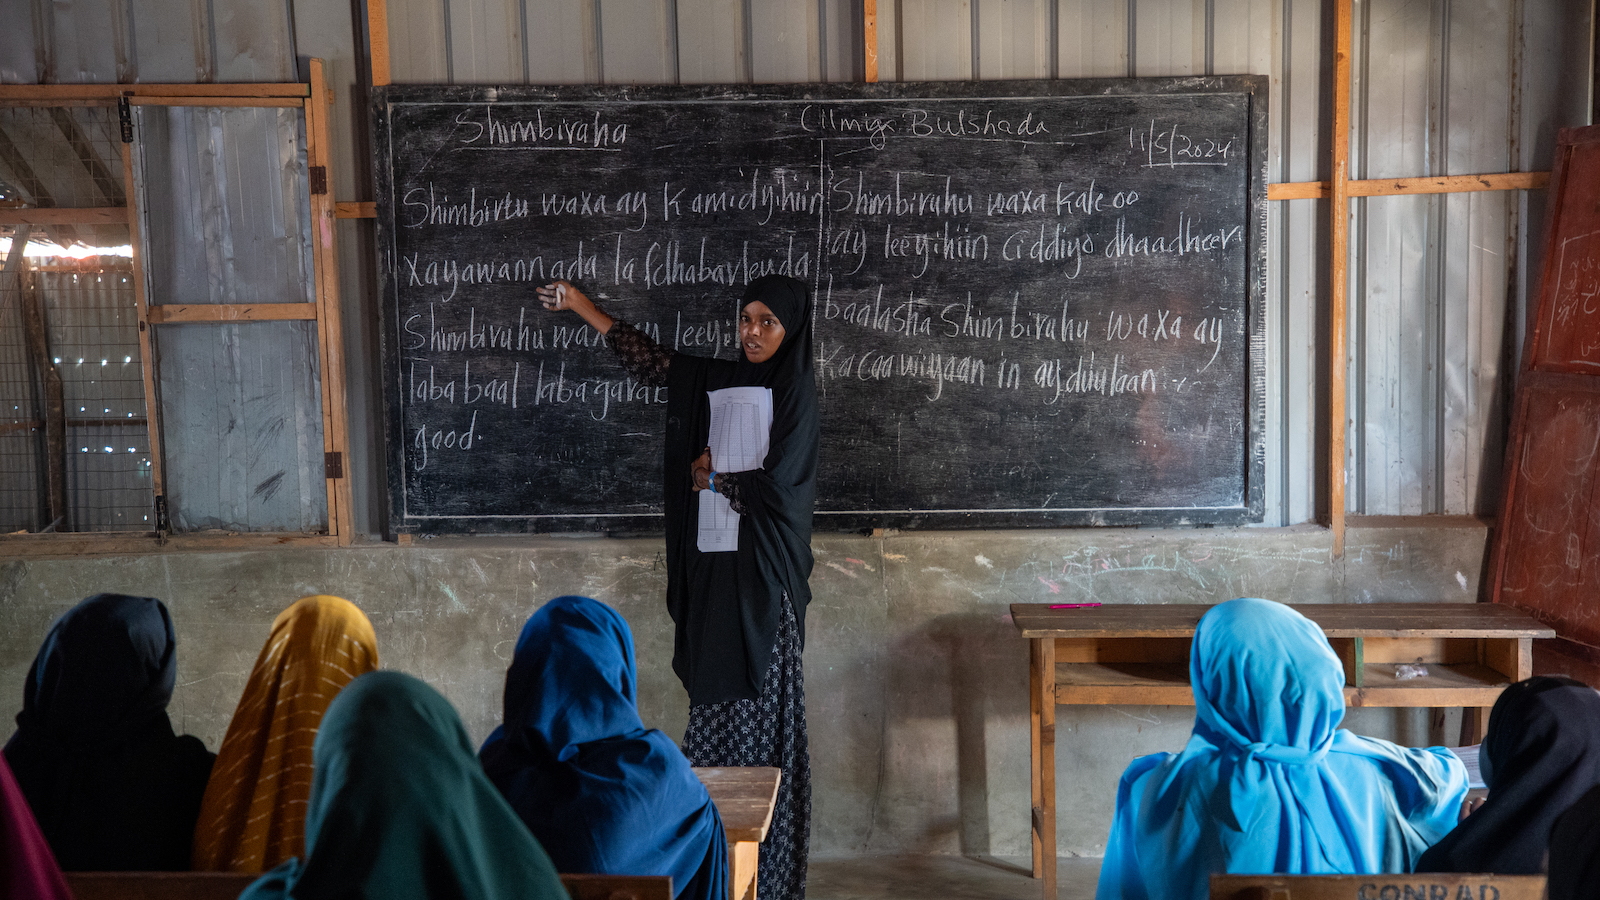 Shimbiraha
Cilmiga Bulshada
11/5/2024
Shimbirtu waxa ay kamidyihiin
xayawannada lafdhabarleyda
Shimbirahu waxa ay leeyih
laba baal laba garar
good.
Shimbirahu waxa kale oo
ay leeyihiin Ciddiyo dhaadheer
baalasha Shimbirahu waxa ay
Kacaawiyaan in ay duulaan
CONRAD